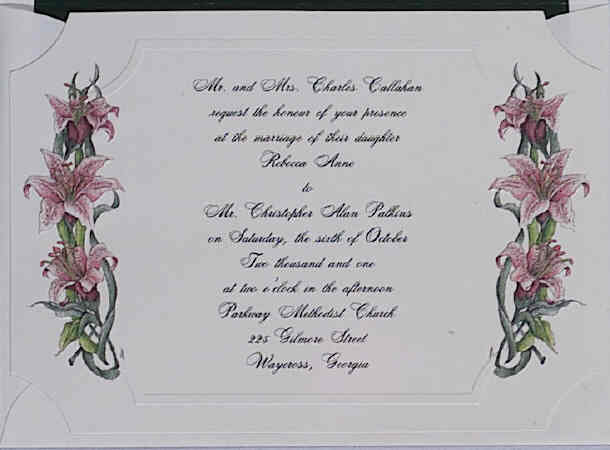 Mr. and Mrs. Charles Callahan
request the honour of your presence
at the marriage of their daughter
Rebecca Anne
to
Mr. Christopher Alan Patkins
on Saturday, the sixth of October
Two thousand and one
at two o'clock in the afternoon
Parkway Methodist Church
225 Gilmore Street
Waycross, Georgia